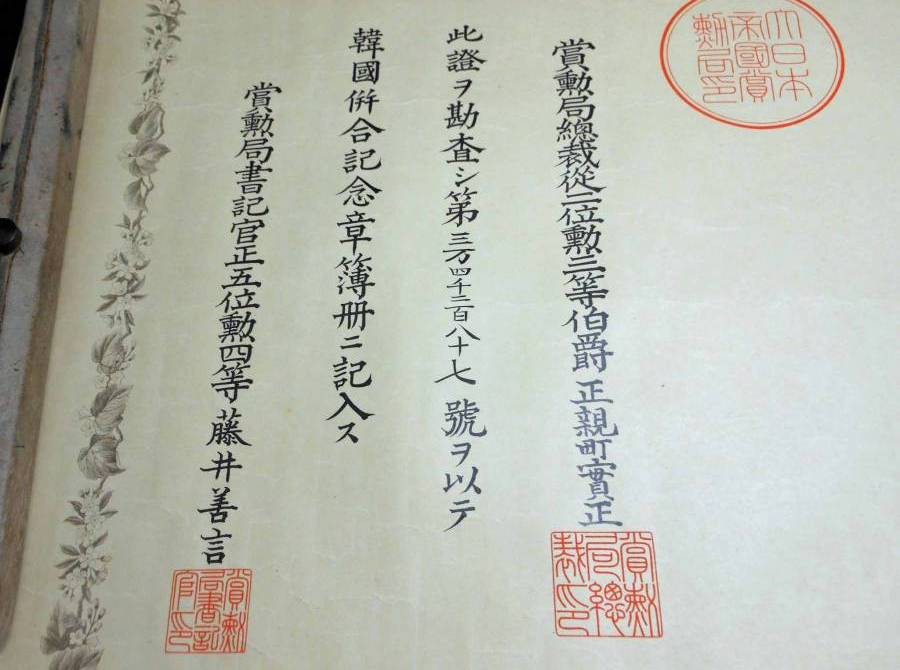 大日本
帝國賞
勳局印
賞勲局總裁從二位勲三等伯爵 正親町實正
賞勲
局總
裁印
此證ヲ勘査シ第三万四千二百八十七號ヲ以テ
韓國併合記念章簿册ニ記入ス
賞勲局書記官正五位勲四等藤井善言
賞勲
局書記
官印